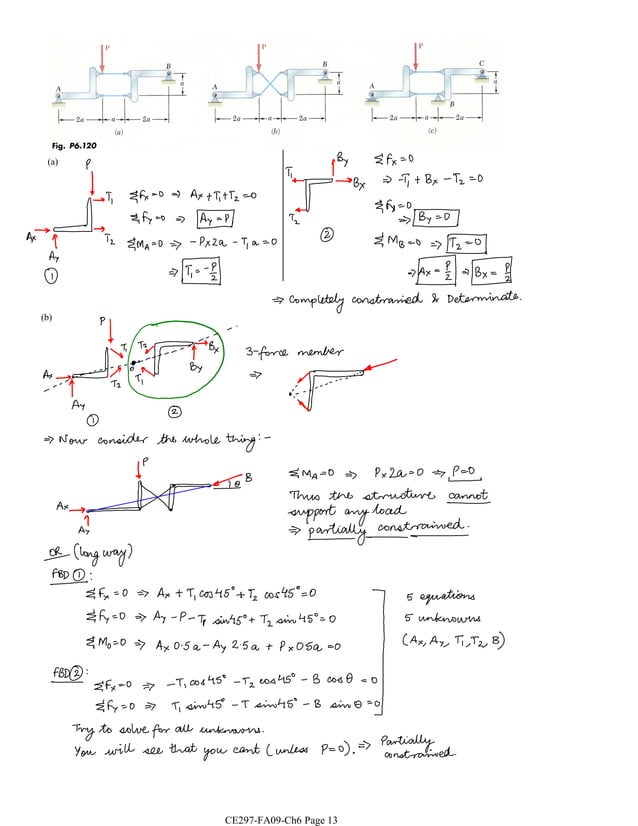 P
P
P
A
B
A
B
A
B
C
a
a
a
2a
a
2a
2a
a
2a
2a
a
2a
(a)
(b)
(c)
Fig. P6.120
(a)
P
T₁
Ax
Ay
T₂
①
ΣFx=0 ⇒ Ax+T₁+T₂=0
ΣFy=0 ⇒ Ay=P
ΣMA=0 ⇒ -Px2a - T₁a=0
⇒ T₁=-P/2
T₁
By
Bx
T₂
②
ΣFx=0
⇒ -T₁ + Bx - T₂=0
ΣFy=0
⇒ By=0
ΣMB=0 ⇒ T₂=0
⇒ Ax=P/2 ⇒ Bx=P/2
⇒ Completely constrained & Determinate.
(b)
P
T₁
T₂
Ax
Ay
①
T₂
T₁
o
Bx
By
②
3-force member
⇒
⇒ Now consider the whole thing:-
P
B
θ
Ax
Ay
ΣMA=0 ⇒ Px2a=0 ⇒ P=0
Thus the structure cannot
support any load
⇒ partially constrained.
OR (long way)
FBD①:
ΣFx=0 ⇒ Ax + T₁ cos45° + T₂ cos45°=0
ΣFy=0 ⇒ Ay-P-T₁ sin45°+ T₂ sin45°=0
ΣMo=0 ⇒ Ax 0.5a - Ay 2.5a + Px0.5a =0
5 equations
5 unknowns
(Ax, Ay, T₁, T₂, B)
FBD②:
ΣFx=0 ⇒ -T₁ cos45° - T₂ cos45° - B cosθ = 0
ΣFy=0 ⇒ T₁ sin45° - T sin45° - B sinθ =0
Try to solve for all unknowns.
You will see that you cant (unless P=0). ⇒ Partially
constrained.
CE297-FA09-Ch6 Page 13